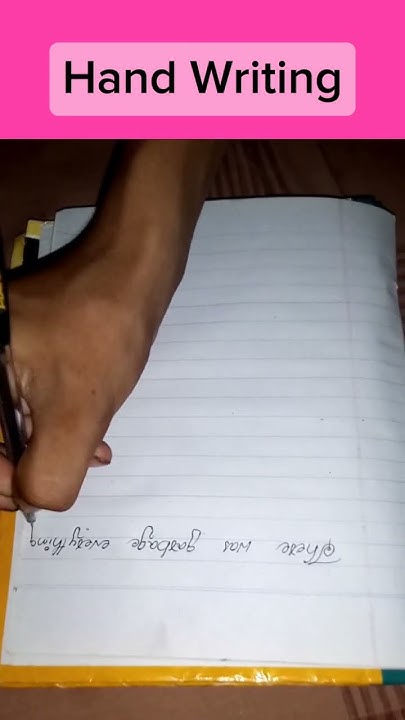 Hand Writing
There was garbage everything